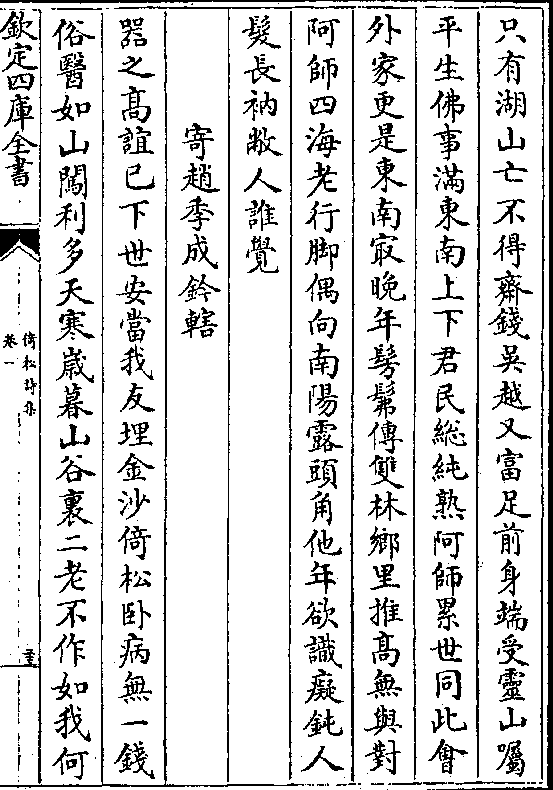 只有湖山亡不得齋錢吳越又富足前身端受靈山囑
平生佛事滿東南上下君民總純熟阿師累世同此會
外家更是東南㝡晚年髣髴傳雙林鄉里推髙無與對
阿師四海老行脚偶向南陽露頭角他年欲識癡鈍人
髮長衲敝人誰覺
寄趙季成鈐轄
器之髙誼已下世安當我友埋金沙倚松卧病無一錢
俗醫如山闘利多天寒歲暮山谷裏二老不作如我何
欽定四庫全書
倚松詩集
卷一